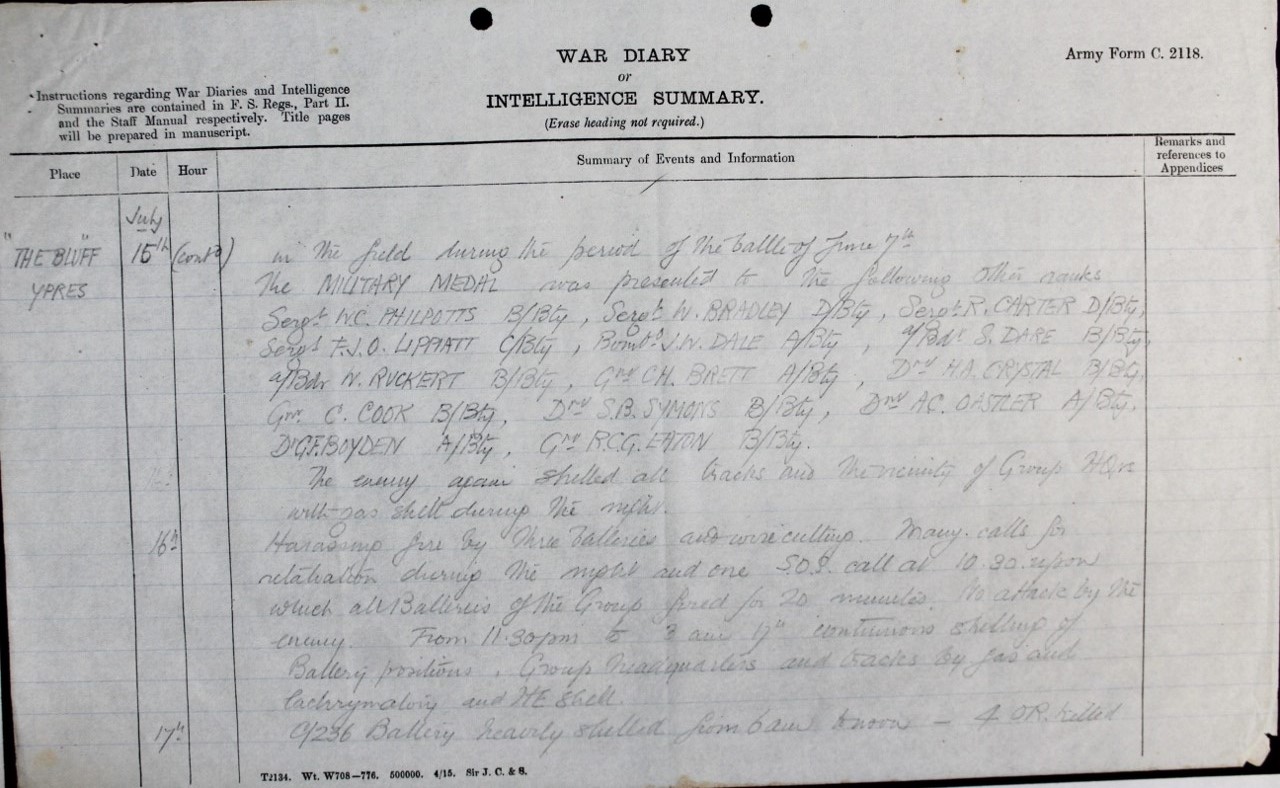 WAR DIARY
or
INTELLIGENCE SUMMARY.
(Erase heading not required.)
Army Form C. 2118.
Instructions regarding War Diaries and Intelligence
Summaries are contained in F. S. Regs., Part II.
and the Staff Manual respectively. Title pages
will be prepared in manuscript.
Place Date Hour Summary of Events and Information Remarks and references to Appendices
July
"THE BLUFF" 15th (contd) in the field during the period of the battle of June 7th
YPRES The MILITARY MEDAL was presented to the following other ranks
Sergt W.C. PHILPOTTS B/Bty, Sergt W. BRADLEY D/Bty, Sergt R. CARTER D/Bty,
Sergt F.J.O. LIPPIATT C/Bty, Bombdr J.W. DALE A/Bty, a/Bdr S. DARE B/Bty,
a/Bdr W. RUCKERT B/Bty, Gnr C.H. BRETT A/Bty, Dvr H.A. CRYSTAL B/Bty,
Gnr. C. COOK B/Bty, Dvr S.B. SYMONS B/Bty, Dvr A.C. OASTLER A/Bty.
Dr G.F. BOYDEN A/Bty, Gnr R.C.G. EATON B/Bty.
The enemy again shelled all tracks and the vicinity of Group HQrs
with gas shell during the night.
16th Harassing fire by three batteries and wire cutting. Many calls for
retaliation during the night and one S.O.S. call at 10.30 upon
which all Batteries of the Group fired for 20 minutes. No attack by the
enemy. From 11.30pm to 3 am 17th continuous shelling of
Battery positions, Group headquarters and tracks by gas and
lachrymatory and HE shell.
17th C/236 Battery heavily shelled from 6 am to noon – 4 OR. killed
T2134. Wt. W708—776. 500000. 4/15. Sir J. C. & S.